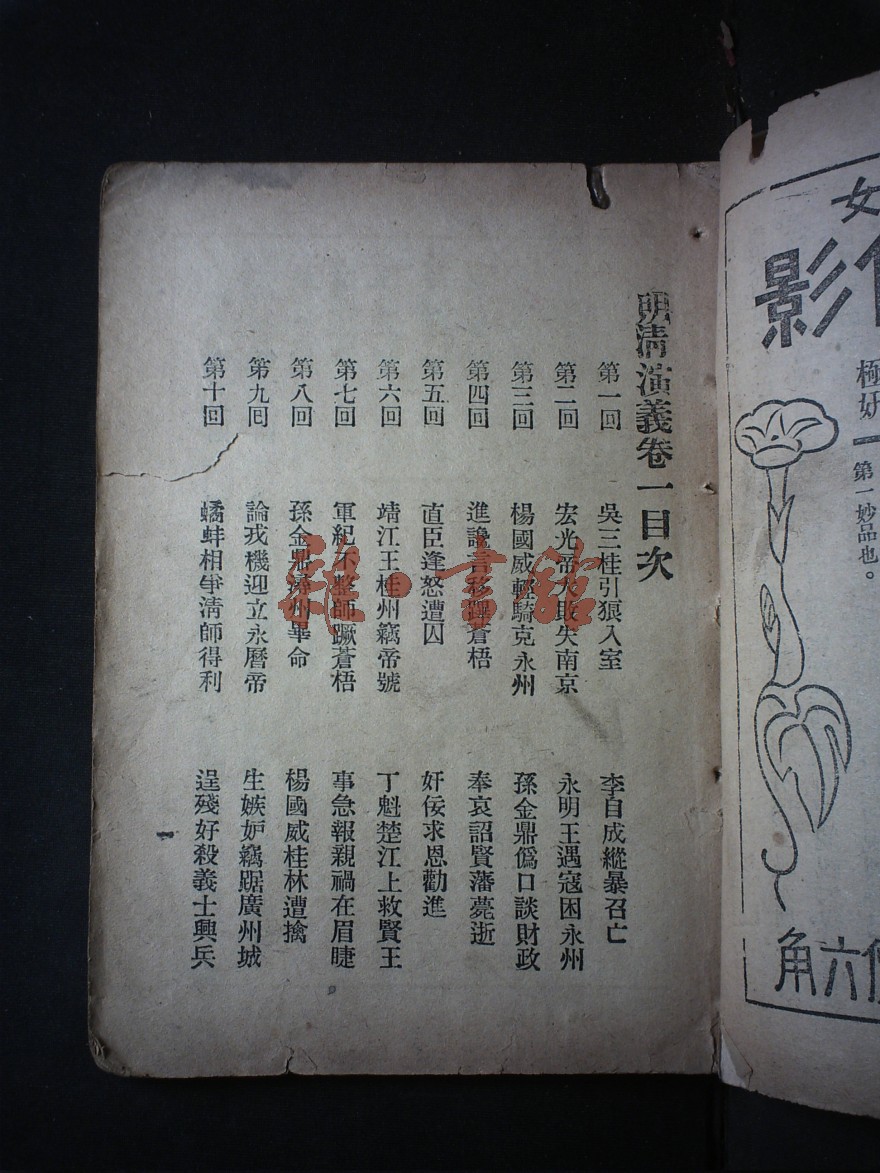 明清演義卷一目次
第一回 吳三桂引狼入室 李自成縱暴召亡
第二回 宏光帝大敗失南京 永明王遇寇困永州
第三回 楊國威輕騎克永州 孫金鼎僞口談財政
第四回 進讒言移蹕蒼梧 奉哀詔賢藩薨逝
第五回 直臣逢怒遭囚 奸佞求恩勸進
第六回 靖江王桂州竊帝號 丁魁楚江上救賢王
第七回 軍紀不整師蹶蒼梧 事急報親禍在眉睫
第八回 孫金鼎潯州畢命 楊國威桂林遭擒
第九回 論戎機迎立永曆帝 生嫉妒竊踞廣州城
第十回 蟠蚌相爭淸師得利 逞殘好殺義士興兵
雜·書館
女
影
極妍
第一妙品也。
角六